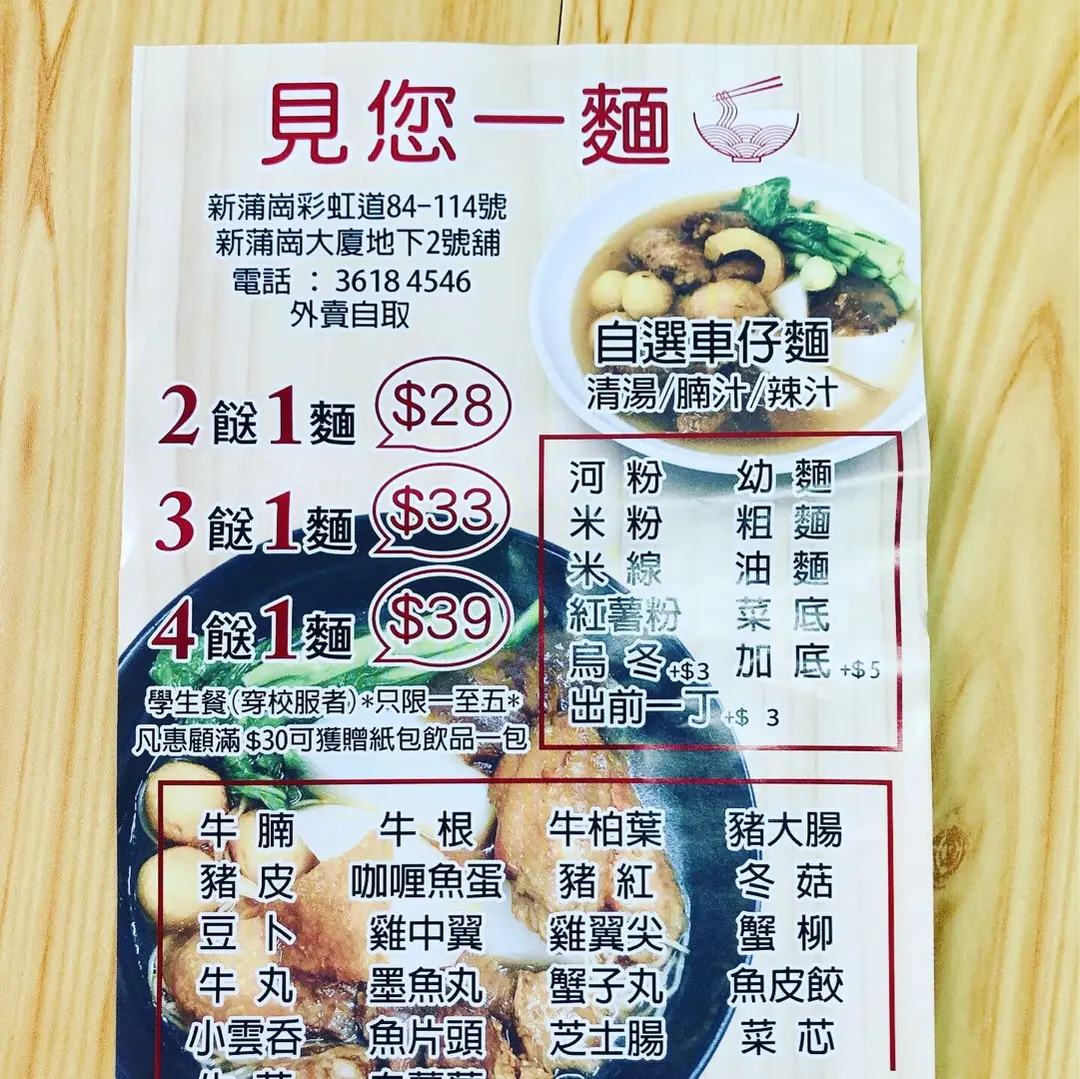 見您一麵
新蒲崗彩虹道84-114號
新蒲崗大廈地下2號舖
電話 : 3618 4546
外賣自取
自選車仔麵
清湯/腩汁/辣汁
2餸1麵 $28
3餸1麵 $33
4餸1麵 $39
學生餐(穿校服者)*只限一至五*
凡惠顧滿$30可獲贈紙包飲品一包
河粉 幼麵
米粉 粗麵
米線 油麵
紅薯粉 菜底
烏冬+$3 加底+$5
出前一丁+$ 3
牛腩 牛根 牛柏葉 豬大腸
豬皮 咖喱魚蛋 豬紅 冬菇
豆卜 雞中翼 雞翼尖 蟹柳
牛丸 墨魚丸 蟹子丸 魚皮餃
小雲吞 魚片頭 芝士腸 菜芯